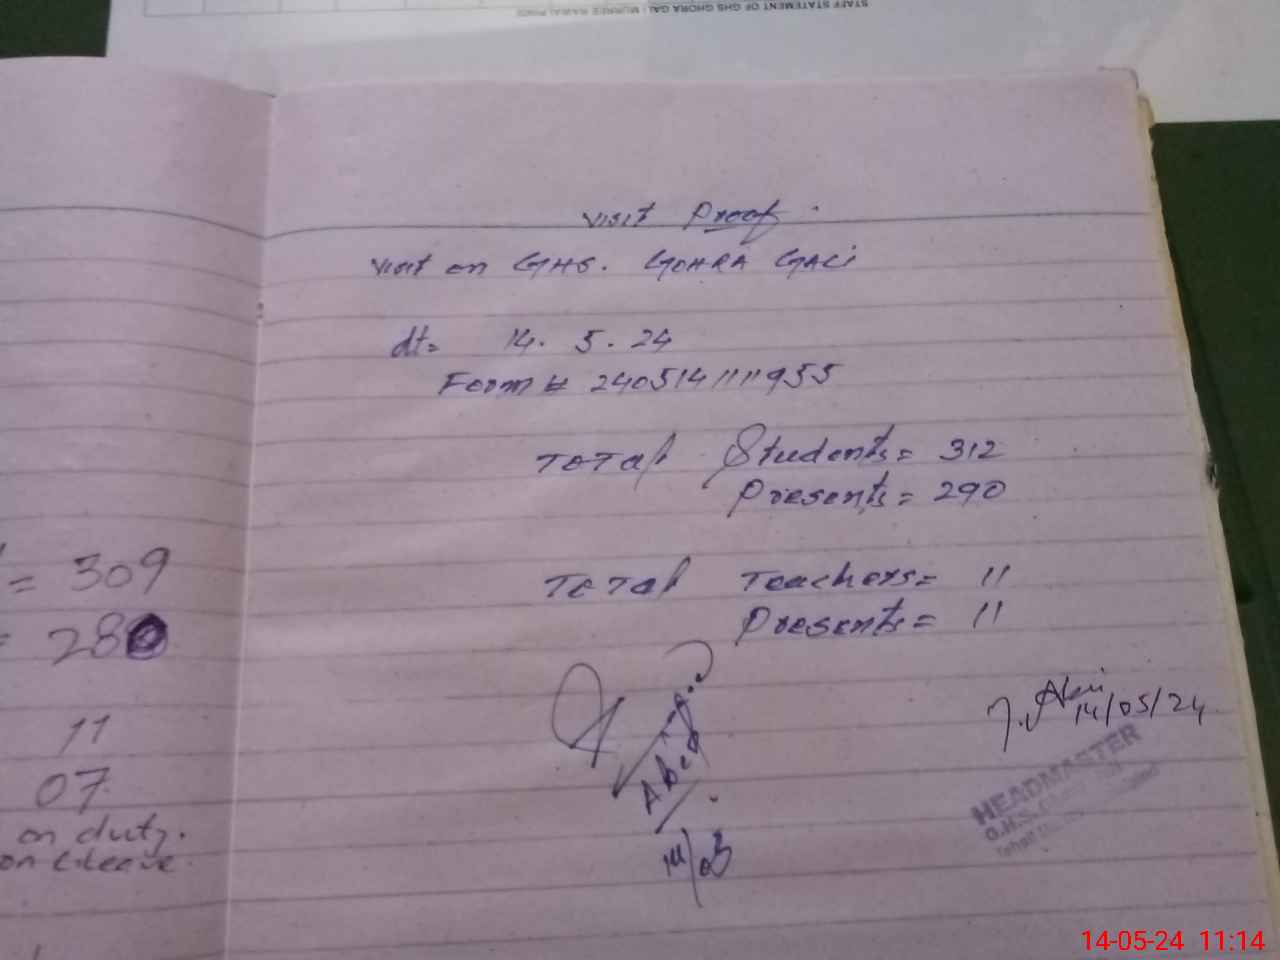 STAFF STATEMENT OF GHS GHORA GALI MURREE RAWALPINDI
= 309
= 280
11
07
on duty.
on leave
Visit Proof.
Visit on GHS. GOHRA GALI
dt= 14. 5. 24
Form # 240514111955
Total Students = 312
Presents = 290
Total Teachers = 11
Presents = 11
14/05/24
HEADMASTER
G.H.S.
14-05-24 11:14